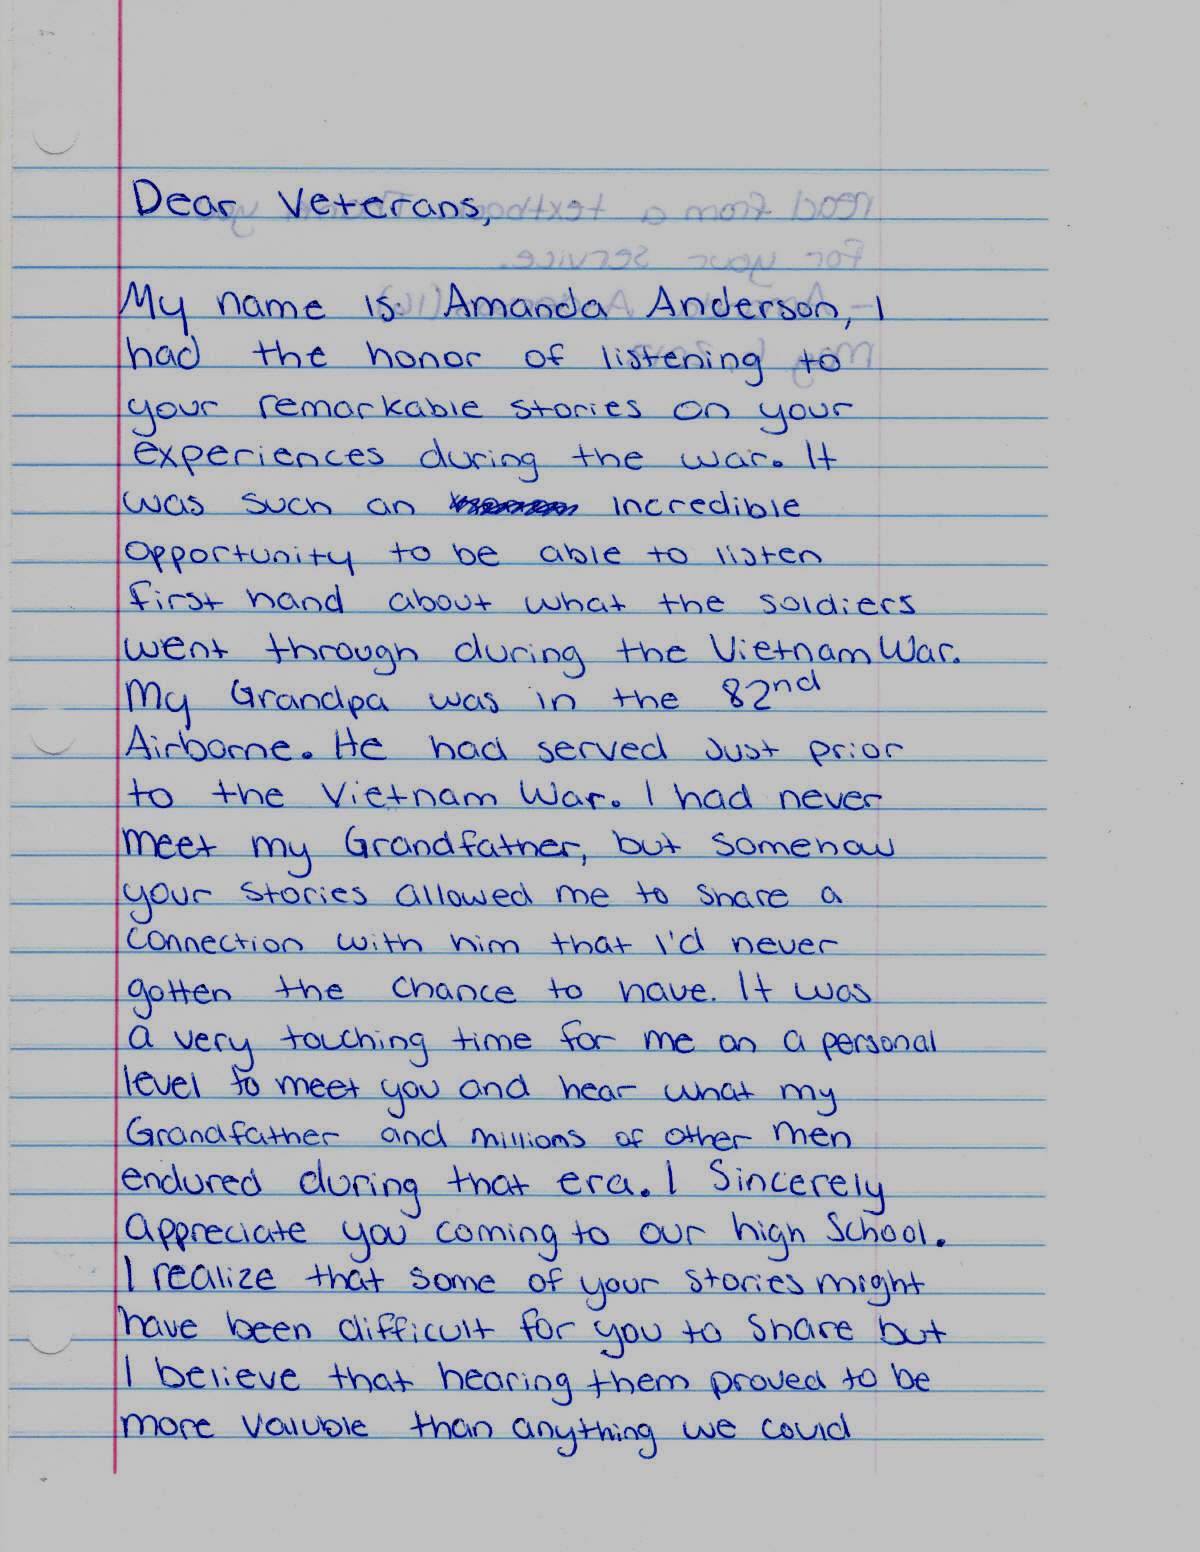 Dear Veterans,
My name is Amanda Anderson, I
had the honor of listening to
your remarkable stories on your
experiences during the war. It
was such an incredible
opportunity to be able to listen
first hand about what the soldiers
went through during the Vietnam War.
My Grandpa was in the 82nd
Airborne. He had served Just prior
to the Vietnam War. I had never
meet my Grandfather, but somehow
your stories allowed me to share a
connection with him that I'd never
gotten the chance to have. It was
a very touching time for me on a personal
level to meet you and hear what my
Grandfather and millions of other men
endured during that era. I Sincerely
appreciate you coming to our high School.
I realize that some of your stories might
have been difficult for you to share but
I believe that hearing them proved to be
more valuble than anything we could
read from a textbook. Thank you
for your service.